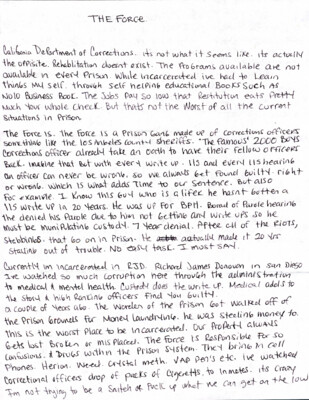 THE FORCE
California Department of Corrections. its not what it seems like. its actually
the oppisite. Rehabilitation doesnt exist. The Programs available are not
available in every Prison. While incarcerated ive had to Learn
things my self. through self helping educational Books such as
NOLO Business Book. The Jobs Pay so low that Restitution eats Pretty
much your whole check. But thats not the Worst of all the current
situations in Prison.
The Force is. The Force is a Prison Gang made up of corrections officers
something like the Los Angeles county sheriffs. The famous" 2000 Boys
Corrections officer already take an oath to have their fellow officers
Back. imagine that But with every write up. 115 and every 115 hearing
an officer can never be wrong. so we always get found guilty. right
or wrong. which is what adds Time to our sentence. But also
For example I know this guy who is a lifer he hasnt gotten a
115 write up in 20 years. He was up for BPH. Board of Parole hearing
The denied his Parole due to him not getting any write ups so he
must be manipulating custody. 7 year denial. After all of the Riots,
Stabbings. that go on in Prison. He actually made it 20 yrs
staying out of trouble. No easy task I must say.
Currently im incarcerated in RJD. Richard James Donovan in San Diego
Ive watched so much corruption here through the administration
to medical & mental health. Custody does the write up. Medical adds to
the story & high Ranking officers find you Guilty.
a couple of years ago. The Warden of the Prison Got walked off of
the Prison Grounds for money Laundrying. he was stealing money to.
This is the worst Place to be incarcerated. Our Property always
Gets lost Broken or mis placed. The Force is Responsible for so
Confusions. & Drugs within the Prison system. They bring in cell
Phones. Herion. Weed. Crystal meth. VAP Pen's etc. Ive watched
Correctional officers drop of packs of cigaretts to inmates. its crazy
I'm not trying to be a snitch or fuck up what we can get on the low